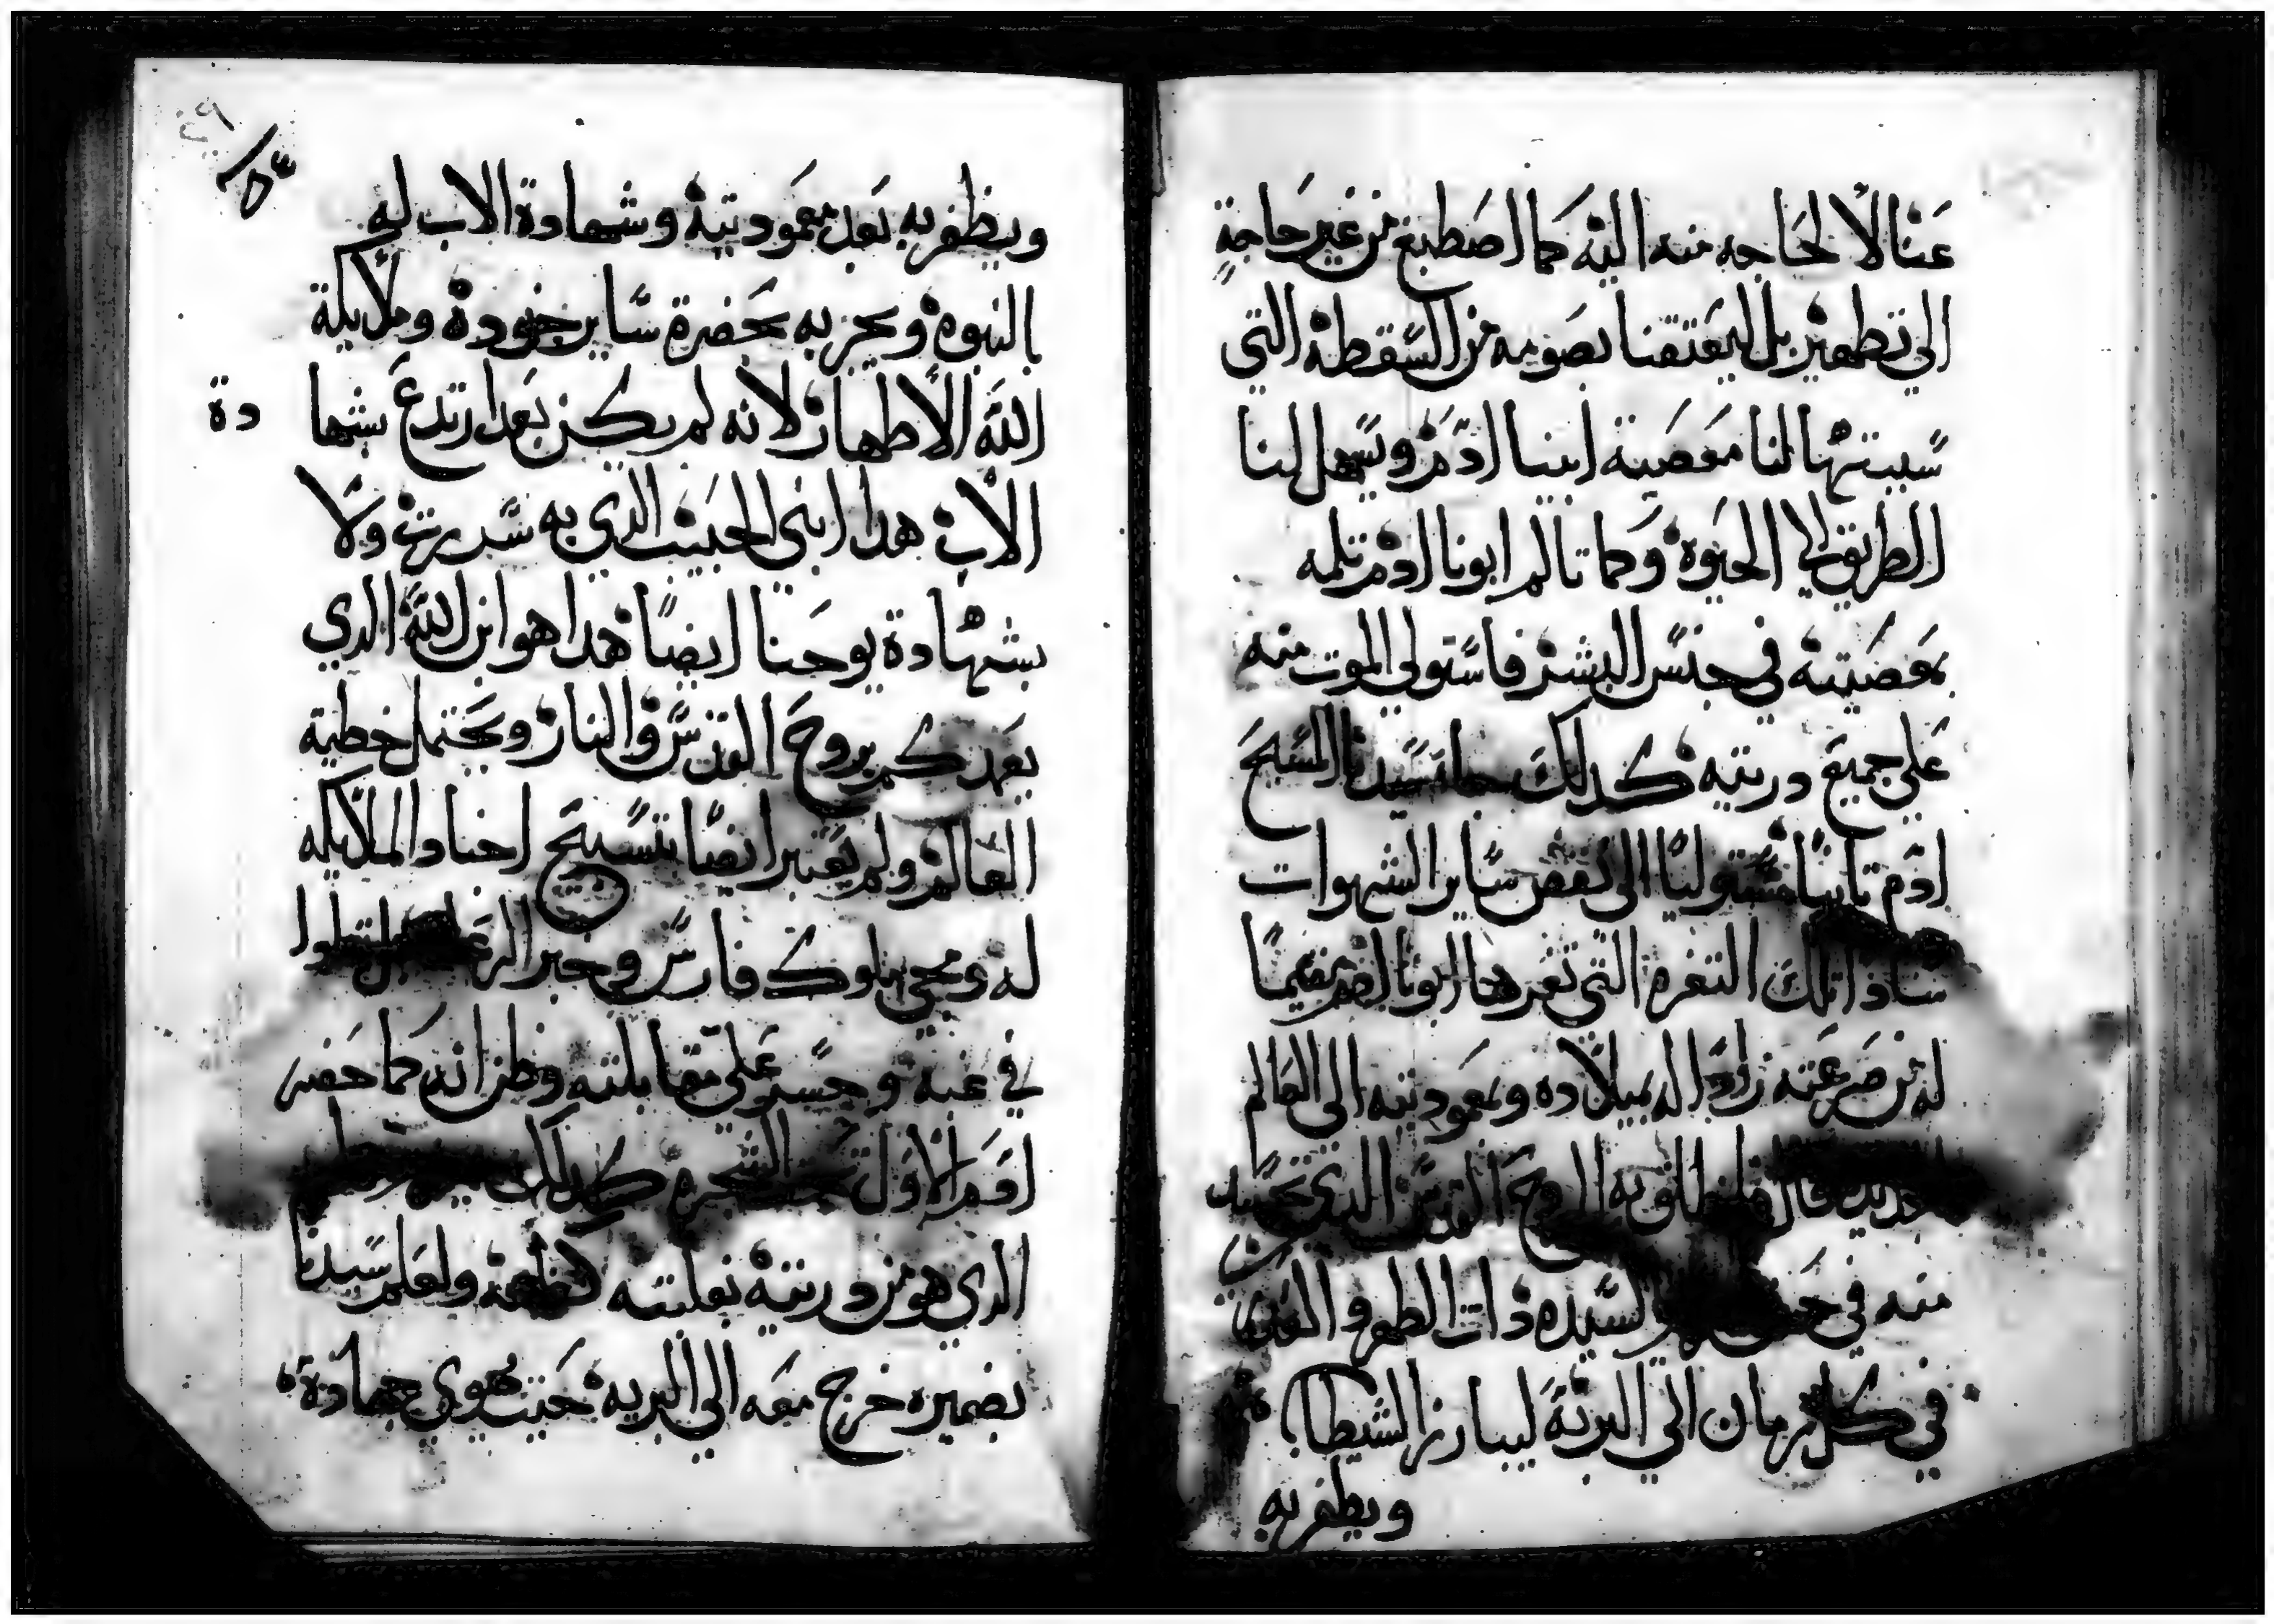 عنا لا لحاجه منه اليه كما اصطبغ من غير حاجة
الي تطهير بل ليعتقنا بصومه من السقطة التي
سببتها لنا معصية ابينا ادم ويسهل لنا
الطريق الي الحيوة وكما تالم ابونا ادم تلمه
بمعصيته في جنس البشر فاستولي الموت منه
علي جميع دريته كدلك سيدنا المسيح
ادم تايبا الي نقض ساير الشهوات
تلك الثغرة التي ثغرها ابونا
له من صرعته الد بميلاده ومعموديته الى العالم
به الروح القدس الدي تجسد
منه في السيده ذات الطهر و القدس
في كل زمان الي البرية ليبارز الشيطان
ويظفر به
٥٤
ويظفر به بعد معموديته وشهادة الاب له
بالنبوة ويحزبه بحضرة ساير جنوده وملايكة
الله الاطهار لانه لم يكن بعد ارتدع بشها
دة
الاب هدا ابني الحبيب الدي به سررت ولا
بشهادة يوحنا ايضا هدا هو ابن الله الدي
يعمدكم بروح القدس والنار ويحتمل خطية
العالم ولم يعتبر ايضا بتسبيح اجناد الملايكه
له ومجي ملوك فارس وخبر
في غيه وجسر علي مقابلته وظن انه كما حضر
لادم الاول تحت الشجرة كدلك
الدي هو من دريته بغلبته ولعلم سيدنا
بضميره خرج معه الي البريه حيث يحوي جهادة